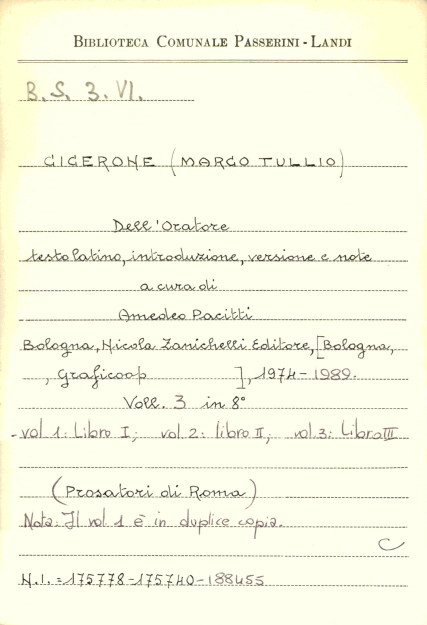 BIBLIOTECA COMUNALE PASSERINI-LANDI
B.S. 3. VI.
CICERONE (MARCO TULLIO)
Dell'Oratore
testo latino, introduzione, versione e note
a cura di
Amedeo Pacitti
Bologna, Nicola Zanichelli Editore, [Bologna,
, Graficoop ], 1974-1989.
Voll. 3 in 8°
- vol 1: Libro I; vol 2: libro II; vol 3: Libro III
(Prosatori di Roma)
Nota: Il vol. 1 è in duplice copia.
C
N.I. = 175778-175740-188455